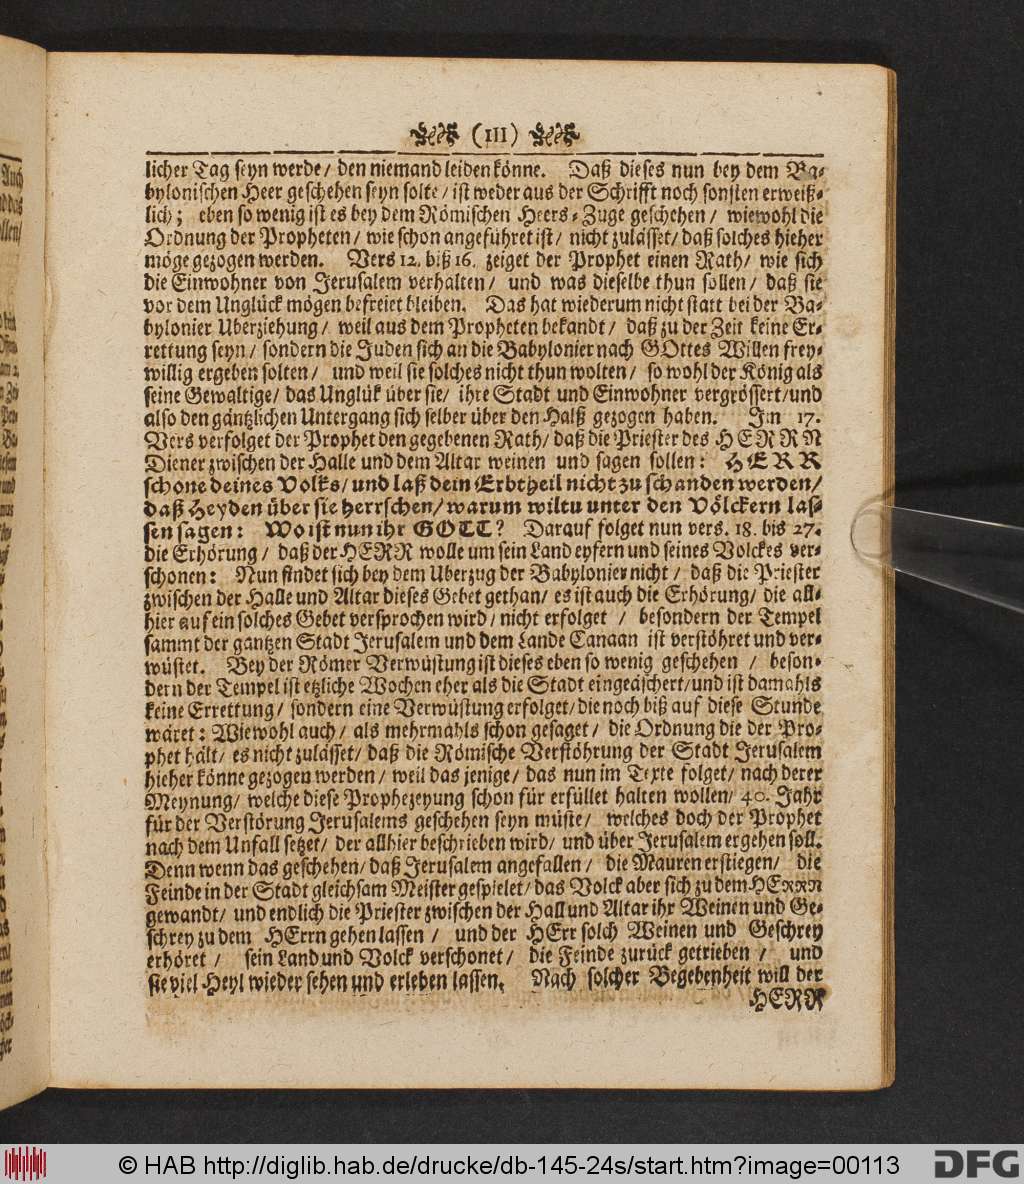 (111)
licher Tag seyn werde/ den niemand leiden könne. Daß dieses nun bey dem Ba-
bylonischen Heer geschehen seyn solte/ ist weder aus der Schrifft noch sonsten erweiß-
lich; eben so wenig ist es bey dem Römischen Heers-Zuge geschehen/ wiewohl die
Ordnung der Propheten/ wie schon angeführet ist/ nicht zulässet/ daß solches hieher
möge gezogen werden. Vers 12. biß 16. zeiget der Prophet einen Rath/ wie sich
die Einwohner von Jerusalem verhalten/ und was dieselbe thun sollen/ daß sie
vor dem Unglück mögen befreiet bleiben. Das hat wiederum nicht statt bei der Ba-
bylonier Uberziehung/ weil aus dem Propheten bekandt/ daß zu der Zeit keine Er-
rettung seyn/ sondern die Juden sich an die Babylonier nach GOttes Willen frey-
willig ergeben solten/ und weil sie solches nicht thun wolten/ so wohl der König als
seine Gewaltige/ das Unglük über sie/ ihre Stadt und Einwohner vergrössert/und
also den gäntzlichen Untergang sich selber über den Halß gezogen haben. Im 17.
Vers verfolget der Prophet den gegebenen Rath/ daß die Priester des HERRN
Diener zwischen der Halle und dem Altar weinen und sagen sollen: HERR
schone deines Volks/ und laß dein Erbtheil nicht zu schanden werden/
daß Heyden über sie herrschen/ warum wiltu unter den Völckern las-
sen sagen: Wo ist nun ihr GOTT? Darauf folget nun vers. 18. bis 27.
die Erhörung/ daß der HERR wolle um sein Land eyfern und seines Volckes ver-
schonen: Nun findet sich bey dem Uberzug der Babylonier nicht/ daß die Priester
zwischen der Halle und Altar dieses Gebet gethan/ es ist auch die Erhörung/ die all-
hier auf ein solches Gebet versprochen wird/ nicht erfolget/ besondern der Tempel
sammt der gantzen Stadt Jerusalem und dem Lande Canaan ist verstöhret und ver-
wüstet. Bey der Römer Verwüstung ist dieses eben so wenig geschehen/ beson-
dern der Tempel ist etzliche Wochen eher als die Stadt eingeäschert/und ist damahls
keine Errettung/ sondern eine Verwüstung erfolget/ die noch biß auf diese Stunde
wäret: Wiewohl auch/ als mehrmahls schon gesaget/ die Ordnung die der Pro-
phet hält/ es nicht zulässet/ daß die Römische Verstöhrung der Stadt Jerusalem
hieher könne gezogen werden/ weil das jenige/ das nun im Texte folget/ nach derer
Meynung/ welche diese Prophezeyung schon für erfüllet halten wollen/ 40. Jahr
für der Verstörung Jerusalems geschehen seyn müste/ welches doch der Prophet
nach dem Unfall setzet/ der allhier beschrieben wird/ und über Jerusalem ergehen soll.
Denn wenn das geschehen/ daß Jerusalem angefallen/ die Mauren erstiegen/ die
Feinde in der Stadt gleichsam Meister gespielet/ das Volck aber sich zu dem HERRN
gewandt/ und endlich die Priester zwischen der Hall und Altar ihr Weinen und Ge-
schrey zu dem HErrn gehen lassen/ und der HErr solch Weinen und Geschrey
erhöret/ sein Land und Volck verschonet/ die Feinde zurück getrieben/ und
sie viel Heyl wieder sehen und erleben lassen. Nach solcher Begebenheit will der
HERR
© HAB http://diglib.hab.de/drucke/db-145-24s/start.htm?image=00113
DFG